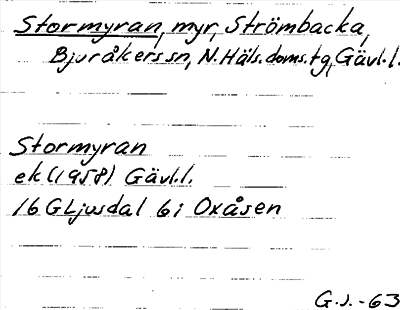 Stormyran, myr, Strömbacka,
Bjuråkers sn, N. Häls. doms. tg, Gävl.l.
Stormyran
ek (1958) Gävl.l.
16 G Ljusdal 6 i Oxåsen
G.J. -63